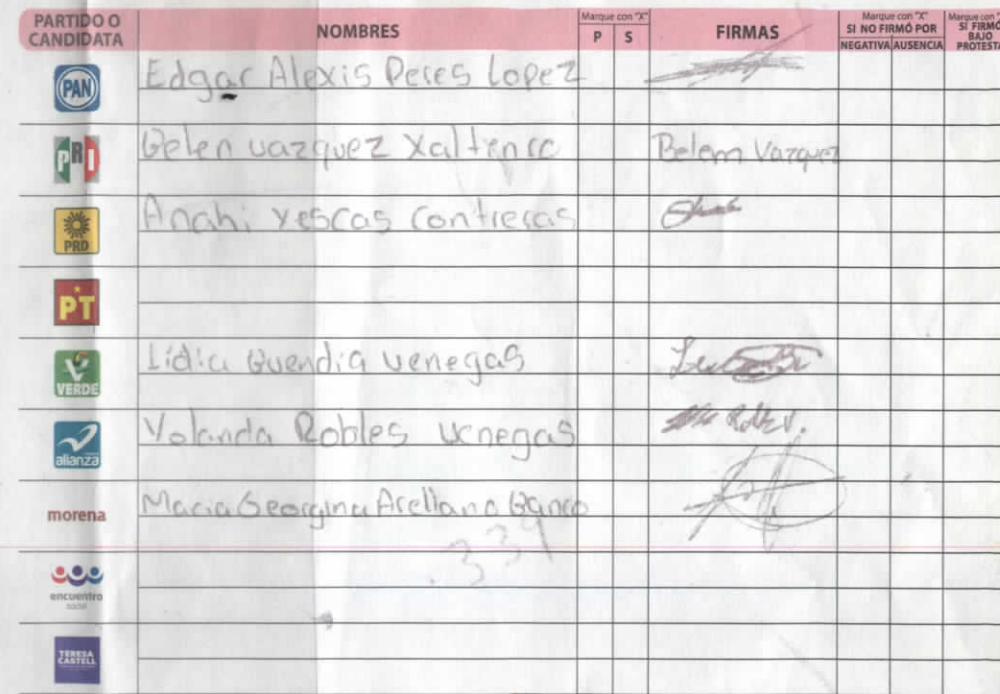 PARTIDO O CANDIDATA
NOMBRES
Marque con "X"
P S
FIRMAS
Marque con "X"
SI NO FIRMÓ POR
NEGATIVA AUSENCIA
Marque con "X"
SI FIRMÓ BAJO PROTESTA
PAN Edgar Alexis Peres Lopez
PRI Belen vazquez Belem Vazquez
PRD Anahi yescas Contreras
PT
VERDE Lidia Buendia venegas
alianza Yolanda Robles venegas
morena Maria Georgina Arellano
339
encuentro social
TERESA CASTELL